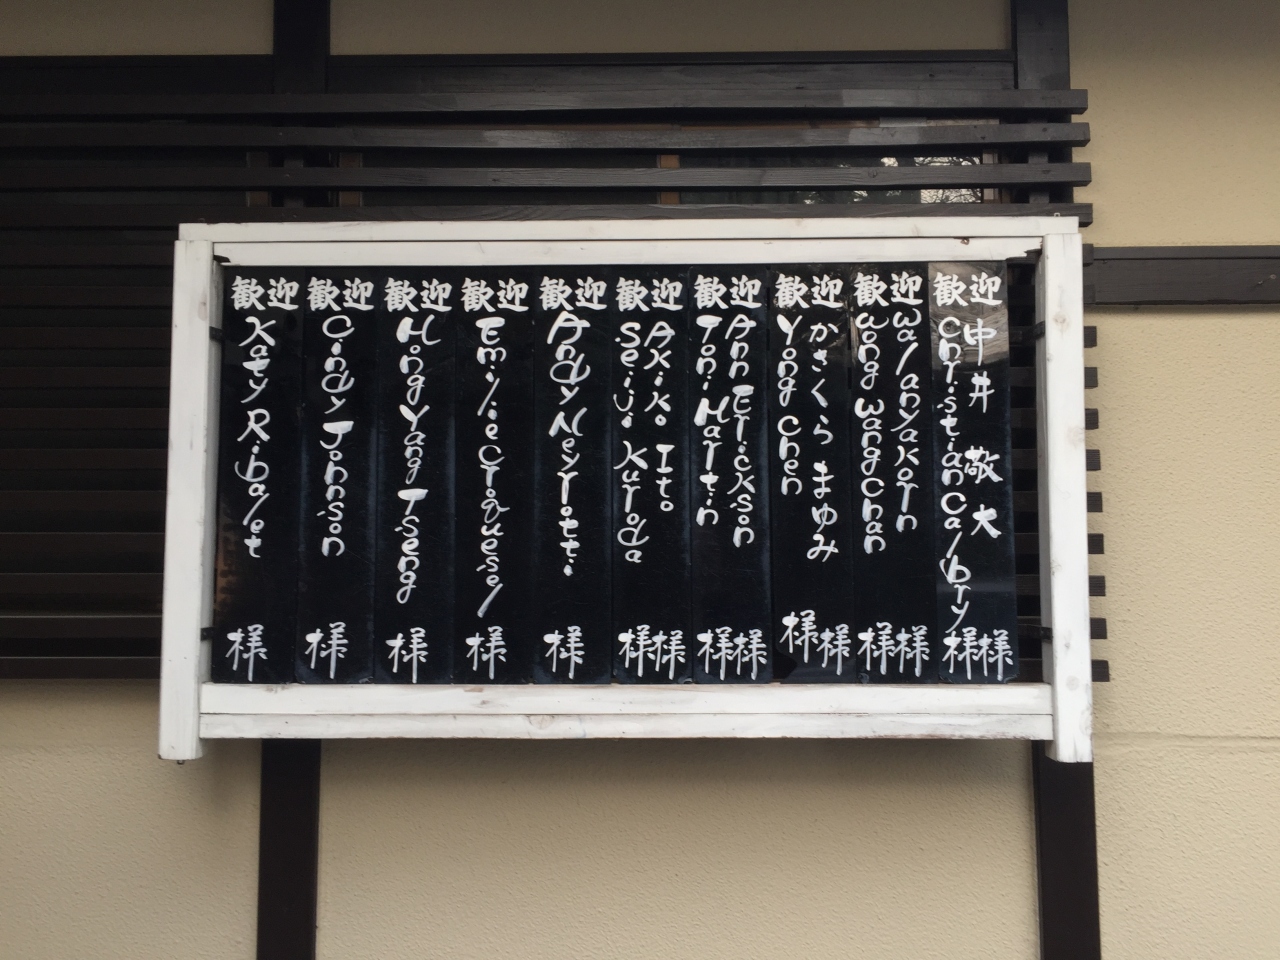 歓迎
中井 敬大 様
Christian Calbry 様
歓迎
Walanyakorn 様
Wong Wang Chan 様
歓迎
かさくら まゆみ 様
Yong Chen 様
歓迎
Ann Erickson 様
Toni Martin 様
歓迎
Akiko Ito 様
Seiji Kuroda 様
歓迎
Andy Neyrotti 様
歓迎
Emilie Croquesel 様
歓迎
Hong Yang Tseng 様
歓迎
Cindy Jonnson 様
歓迎
Katy Ribalet 様